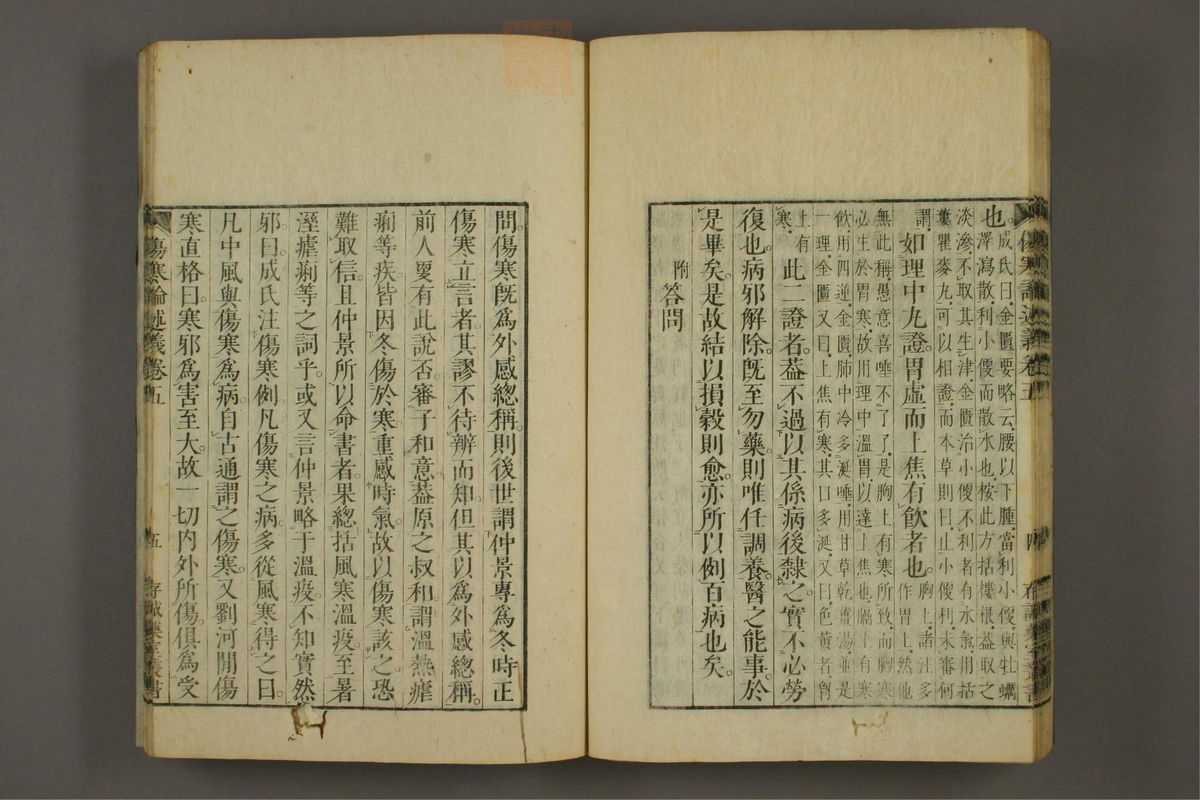 也。成氏曰。金匱要略云。腰以下腫。當利小便。與牡蠣
澤瀉散。利小便而散水也。桉此方括樓根。葢取之
淡滲。不取其生津。金匱治小便不利者。有水氣。用括
蔞瞿麥丸。可以相證。而本草則曰。止小便利。未審何
謂。如理中丸證。胃虛而上焦有飮者也。胸上。諸注多作胃上。然他
無此稱。愚意喜唾不了了。是胸上有寒所致。而胸寒
必生於胃寒。故用理中溫胃。以達上焦也。膈上有寒
飮。用四逆。金匱。肺中冷多涎唾。用甘草乾薑湯。並是
一理。金匱又曰。上焦有寒。其口多涎。又曰。色黃者。胃
上有寒。此二證者。葢不過以其係病後隸之。實不必勞
復也。病邪解除。旣至勿藥。則唯任調養。醫之能事於
是畢矣。是故結以損穀則愈。亦所以例百病也矣。
附答問
傷寒論述義卷五
四
存誠藥室叢書
問。傷寒旣爲外感總稱。則後世謂仲景專爲冬時正
傷寒立言者。其謬不待辨而知。但其以爲外感總稱。
前人更有此說否。審子和意。葢原之叔和。謂溫熱瘧
痢等疾。皆因冬傷於寒。重感時氣。故以傷寒該之。恐
難取信。且仲景所以命書者。果總括風寒溫疫。至暑
溼瘧痢等之詞乎。或又言仲景略于溫疫。不知實然
邪。曰。成氏注傷寒例。凡傷寒之病。多從風寒得之曰。
凡中風與傷寒爲病。自古通謂之傷寒。又劉河閒傷
寒直格曰。寒邪爲害至大。故一切內外所傷。俱爲受
傷寒論述義卷五
五
存誠藥室叢書